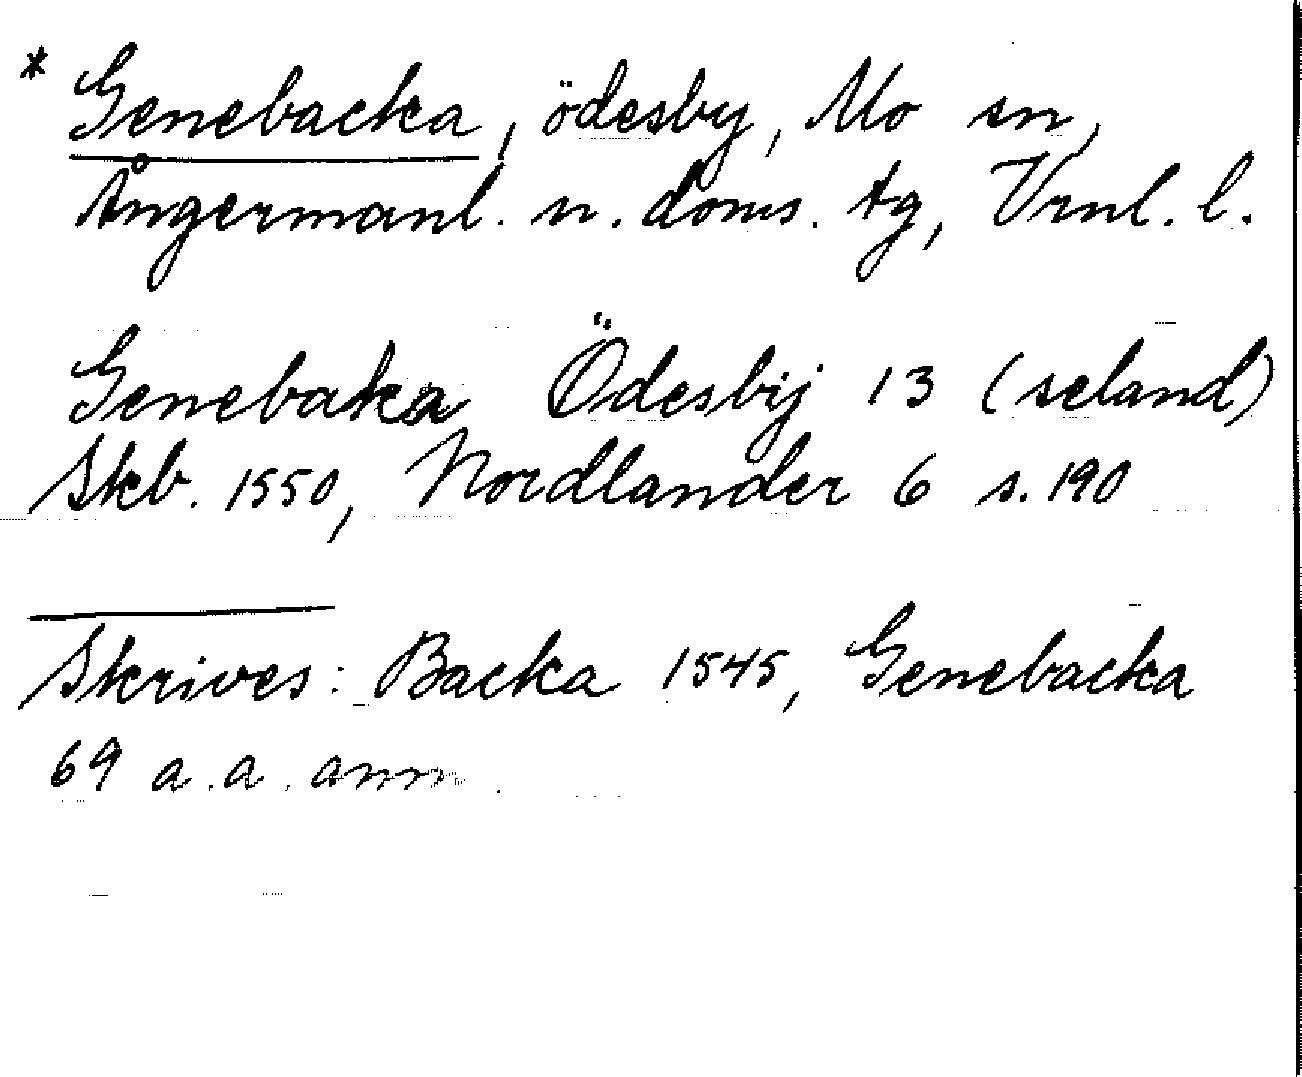 * Genebacka, ödesby, Mo sn,
Ångermanl. n. doms. tg, Vrnl. l.
Genebaka Ödesbij 13 (seland)
Skb. 1550, Nordlander 6 s. 190
Skrives: Backa 1545, Genebacka
69 a. a. anm.